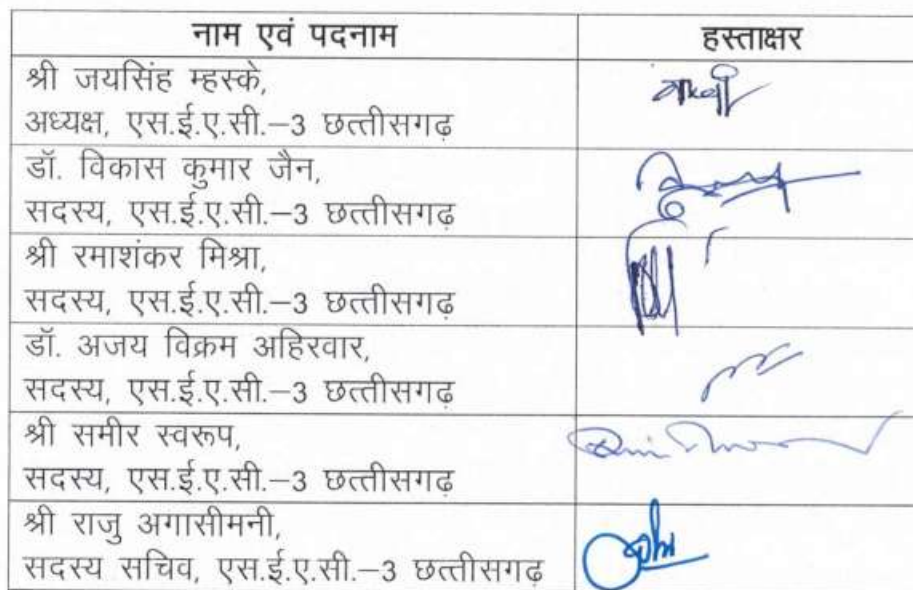 नाम एवं पदनाम हस्ताक्षर
श्री जयसिंह म्हस्के,
अध्यक्ष, एस.ई.ए.सी.–3 छत्तीसगढ़
डॉ. विकास कुमार जैन,
सदस्य, एस.ई.ए.सी.–3 छत्तीसगढ़
श्री रमाशंकर मिश्रा,
सदस्य, एस.ई.ए.सी.–3 छत्तीसगढ़
डॉ. अजय विक्रम अहिरवार,
सदस्य, एस.ई.ए.सी.–3 छत्तीसगढ़
श्री समीर स्वरूप,
सदस्य, एस.ई.ए.सी.–3 छत्तीसगढ़
श्री राजु अगासीमनी,
सदस्य सचिव, एस.ई.ए.सी.–3 छत्तीसगढ़